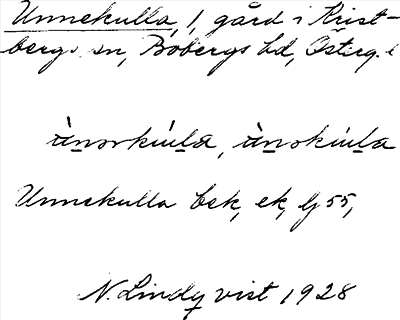 Unnekulla, 1, gård i Krist-
bergs sn, Bobergs hd, Österg. l
ùnorkúla, ùnokúla
Unnekulla bek, ek, Gj 55,
N. Lindqvist 1928